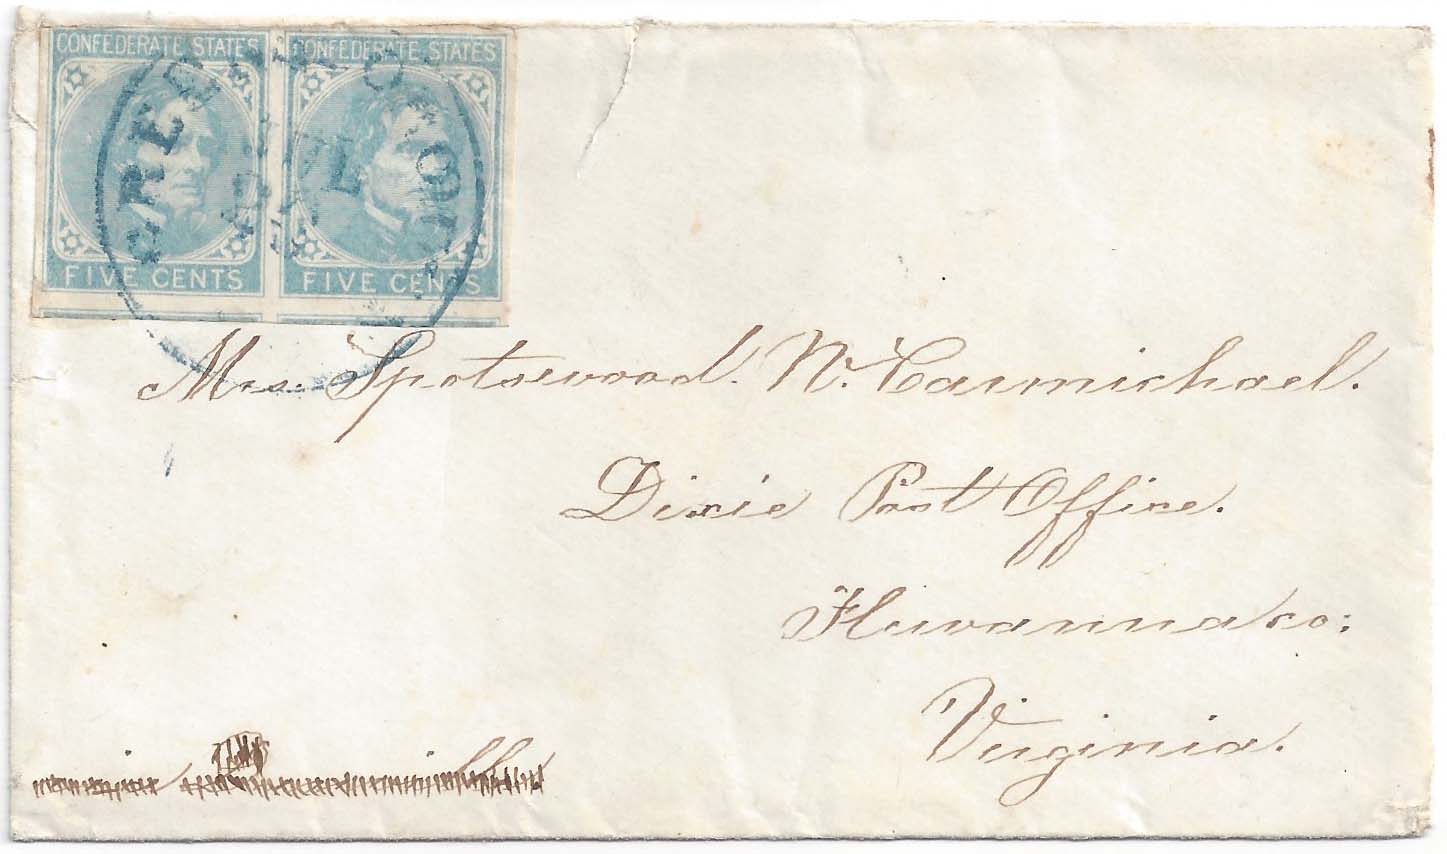 CONFEDERATE STATES CONFEDERATE STATES
FIVE CENTS FIVE CENTS
Mrs. Spotswood. N. Carmichael.
Dixie Post Office.
Fluvanna co:
Virginia.